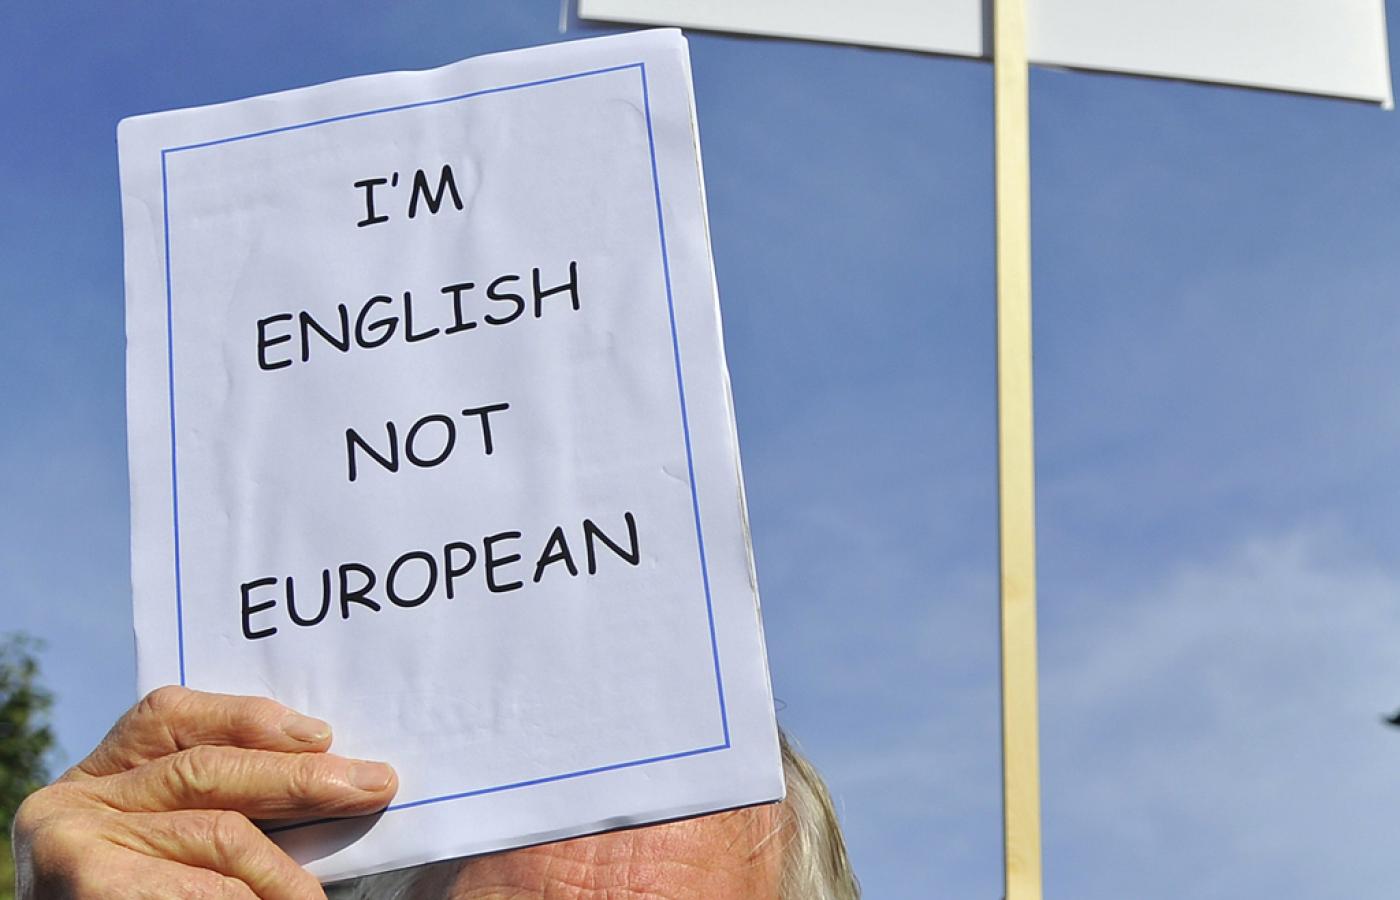 I'M
ENGLISH
NOT
EUROPEAN